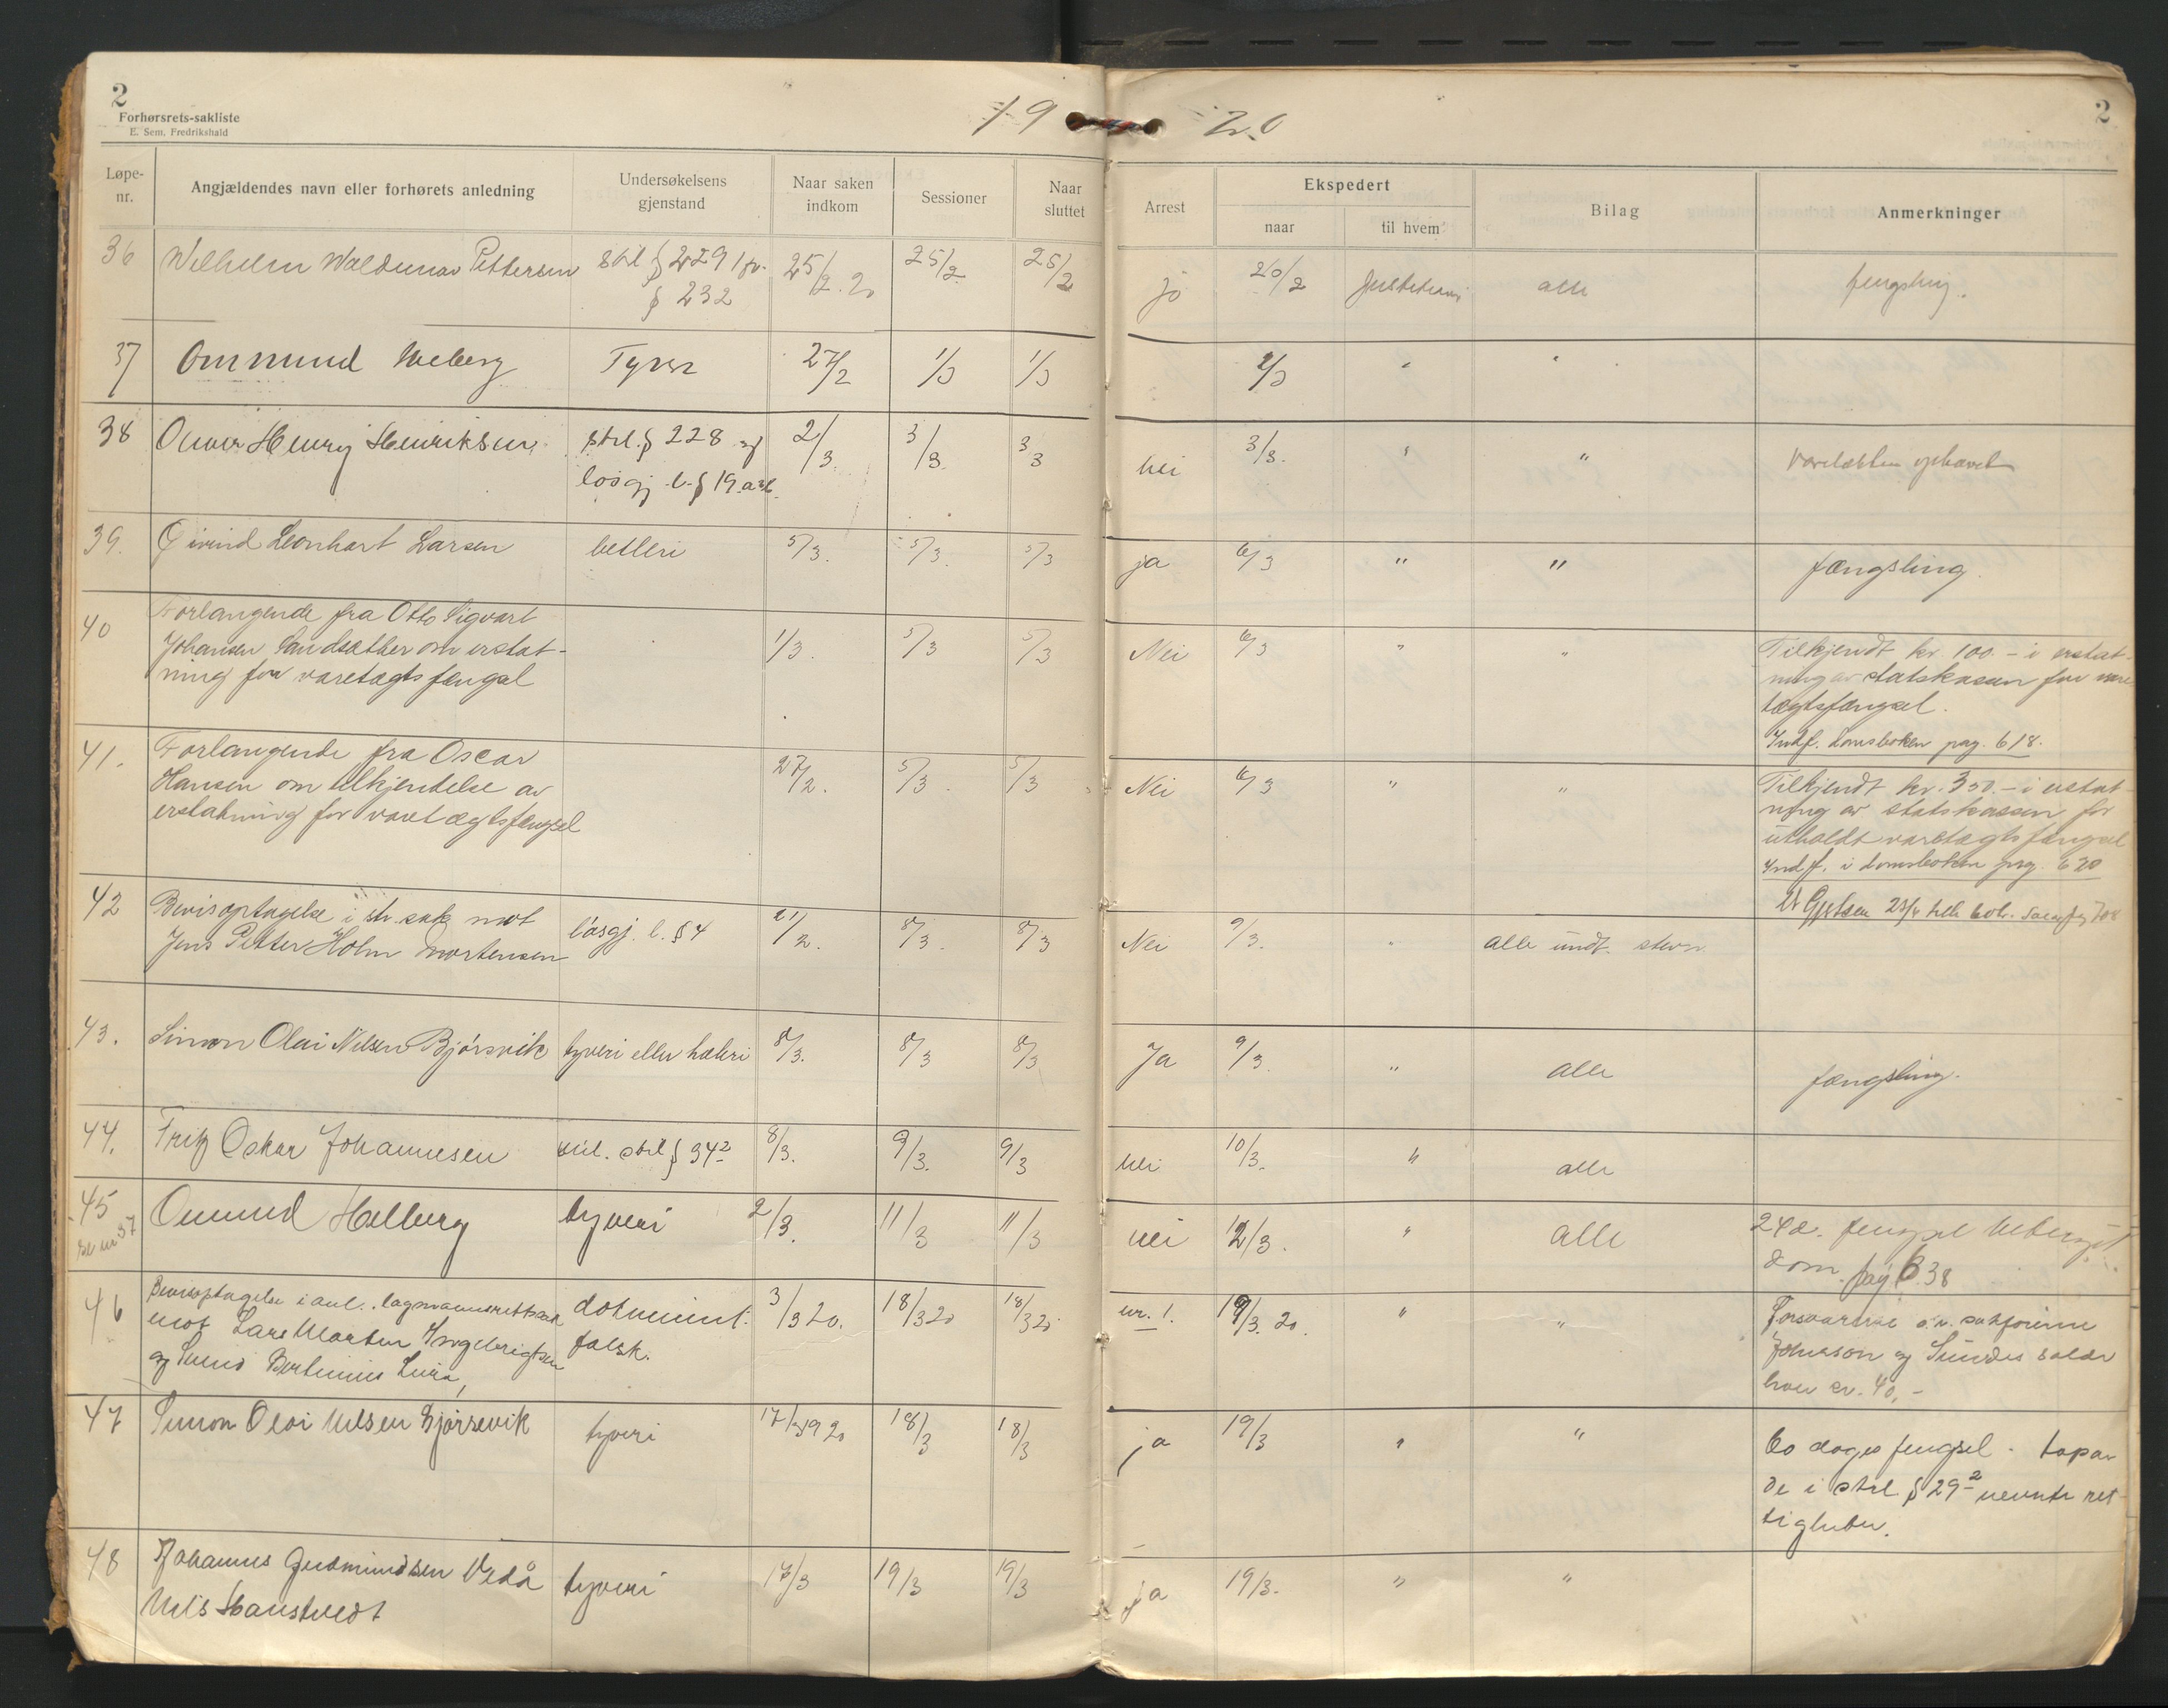 2
Forhørsrets-sakliste
E. Sem, Fredrikshald
19 20
2
Løpe-nr.
Angjældendes navn eller forhørets anledning
Undersøkelsens gjenstand
Naar saken indkom
Sessioner
Naar sluttet
Arrest
Ekspedert
naar
til hvem
Bilag
Anmerkninger
36 Wilhelm Waldemar Pettersen strl § 229 1 25/2. 20 25/2 25/2 ja 26/2 alle fengsling.
§ 232
37 Ommund Weberg 27/2 1/3 1/3 2/3 " "
38 Henry Henriksen strl. § 228 og 2/3 3/3 3/3 nei 3/3. " "
løsgj. l. § 19
39. Øivind Leonhart Larsen betleri 5/3. 5/3. 5/3 ja 6/3 " " fængsling.
40 Forlangende fra Otto Sigvart
Johansen Sandsæther om erstat- 1/3. 5/3 5/3 Nei 6/3 " " Tilkjendt kr. 100.- i erstat-
ning for varetægtsfængsel ning av statskassen for vare
tægtsfængsel.
Indf. domsboken pag. 618.
41. Forlangende fra Oscar 27/2. 5/3. 5/3 Nei 6/3 " " Tilkjendt kr. 350.- i erstat-
Hansen om tilkjendelse av ning av statskassen for
erstatning for varetægtsfængsel utholdt varetægtsfængsel
Indf. i domsboken pag. 620
42 Bevisoptagelse i str. sak mot løsgj. l. § 4 21/2. 8/3. 8/3 Nei 9/3. " alle undt. stevn.
Jens Petter Holm Mortensen
43. Simon Olai Nilsen Bjørsvik tyveri eller hæleri 8/3. 8/3 8/3 Ja 9/3. " alle fængsling.
44. Fritz Oskar Johannesen mil. strl § 34 2 8/3. 9/3. 9/3 nei 10/3. " alle
45 Ommund Helberg tyveri 2/3. 11/3 11/3 nei 12/3. " alle 24 d. fengsel
37 dom. pag 638
46 Bevisoptagelse i anl. lagmannsrettssak dokument- 3/3 20. 18/3 20 18/3 20 nr. 1. 19/3. 20. " " Forsvarerne o.r. sakførerne
mot Lars Morten Ingebrigtsen falsk. Johnson og Sundes salær
og Svend Bertinius hver kr. 40,-
47 Simon Olai Nilsen Bjørsevik tyveri 17/3 1920 18/3 18/3 ja 19/3 " " 60 dages fengsel.
de i strl § 29 2 nevnte ret-
tigheter.
48 Johannes Gudmundsen Vedå tyveri 17/3 19/3 19/3 ja 19/3. " "
Nils Haustvedt